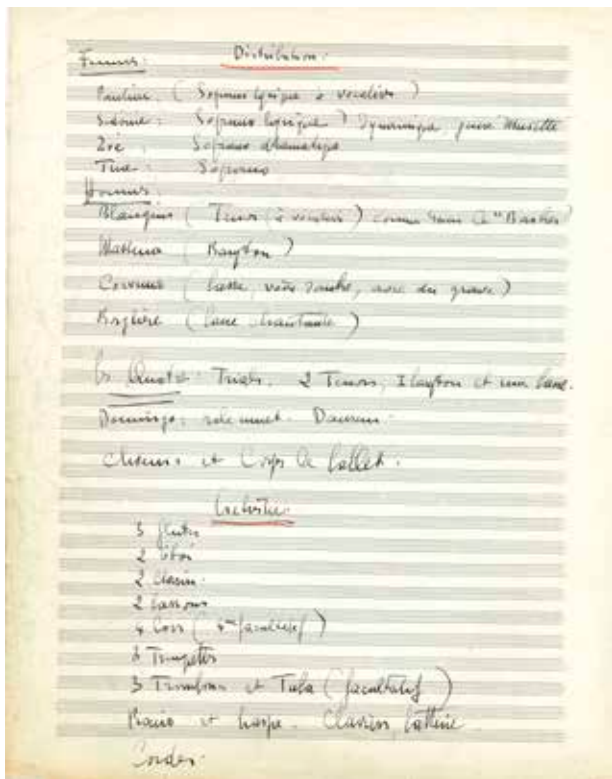 Distribution.
Femmes.
Pauline. (Soprano lyrique à vocalises)
Sidonie: Soprano lyrique) dynamique, genre Musette
Zoé: Soprano dramatique
Tine: Soprano
Hommes:
(Tenor (à vocalises) comme dans le "Barbier"
(Baryton)
(basse, voix sombre, avec du grave)
(basse chantante)
Les Quatre 2 Tenors, 1 baryton et une basse.
Domingo: role muet. Danseur.
Choeurs et Corps de ballet.
Orchestre.
3 flutes
2 htbois
2 Clarin.
2 bassons
4 Cors (4me facultatif)
3 Trompettes
3 Trombones et Tuba (facultatif)
Piano et harpe. batterie.
Cordes.